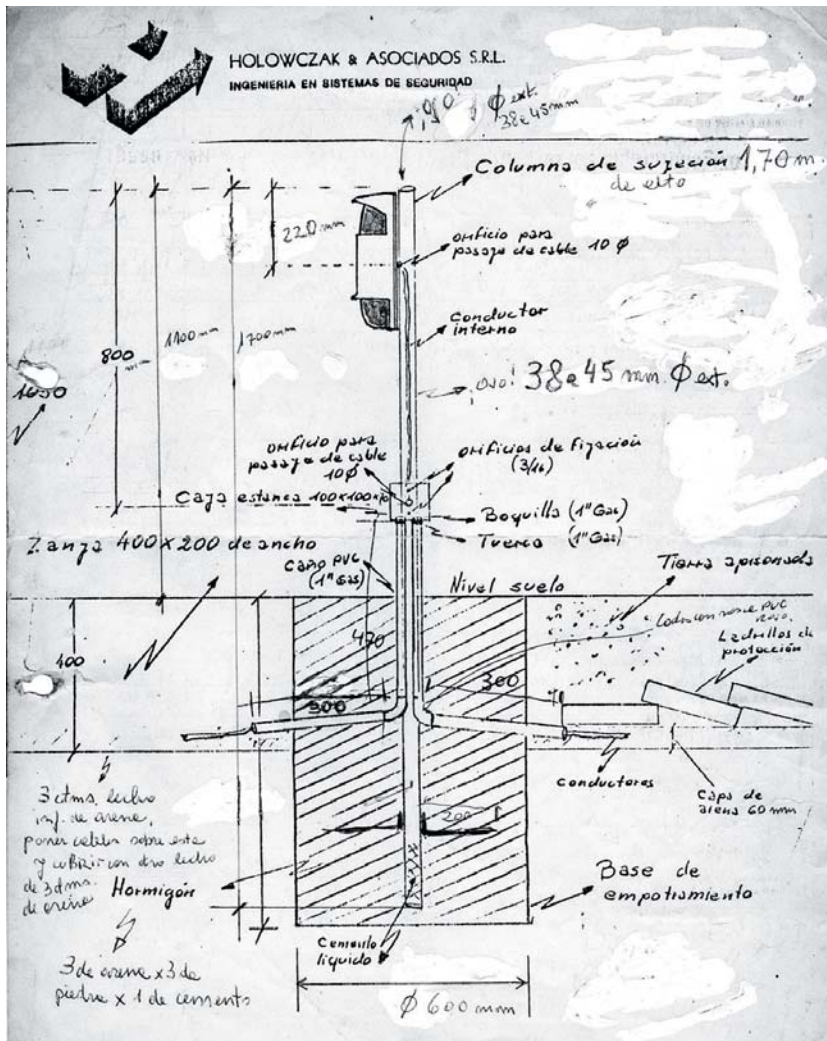 HOLOWCZAK & ASOCIADOS S.R.L.
INGENIERIA EN SISTEMAS DE SEGURIDAD
¡ojo! ϕ ext.
38 a 45mm
Columna de sujeción 1,70 m.
de alto
220 mm
orificio para
pasaje de cable 10 ϕ
Conductor
interno
800
1100 mm
1700 mm
1650
¡ojo! 38 a 45 mm. ϕ ext.
orificio para
pasaje de cable
10 ϕ
orificios de fijación
(3/16)
Caja estanca 100x100x
Boquilla (1" Gas)
Tuerca (1" Gas)
Zanja 400 X 200 de ancho
Caño PVC
(1" Gas)
Nivel suelo
Tierra apisonada
Ladrillos de
protección
400
470
300
300
Conductores
Capa de
arena 60 mm
3 ctms. lecho
inf. de arena,
poner cables sobre este
y cubrir con otro lecho
de 3 ctms.
de arena
200
Hormigón
Base de
empotramiento
Cemento
liquido
3 de arena x 3 de
piedra x 1 de cemento
ϕ 600 mm